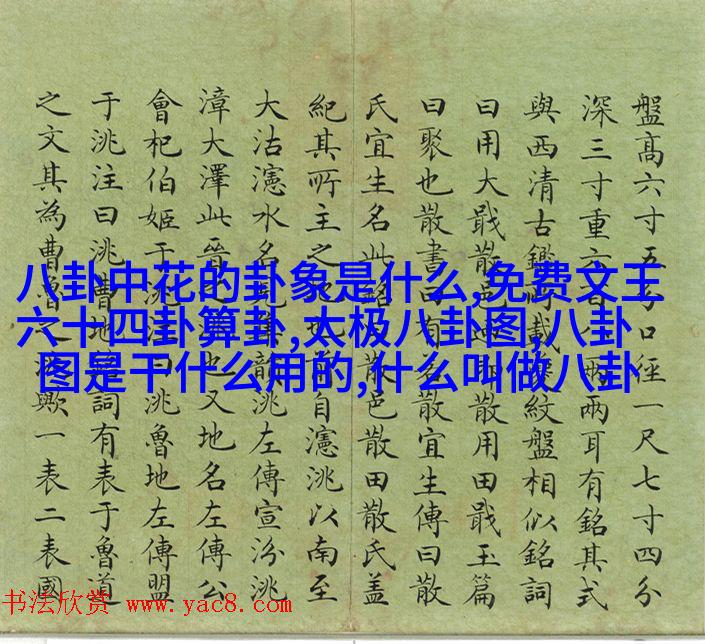 盤高六寸五分口徑一尺七寸四分
深三寸重六百兩兩耳有銘其式
與西清古鑑所載紋盤相似銘詞
曰用大戩散邑迺即散用田戩玉篇
曰聚也散書曰有散宜生傳曰散
氏宜生名此銘散邑散田散氏蓋
紀其所主之地也自瀗洮以南至
大沽瀗水名見集韻洮左傳宣汾洮
漳大澤此晉之也又地名左傳公
會杞伯姬于洮注曰洮魯地左傳盟
于洮注曰洮曹地詞有表于魯道
之文其為曹魯之歟一表二表國
八卦中花的卦象是什么,免费文王
六十四卦算卦,太极八卦图,八卦
图是干什么用的,什么叫做八卦
书法欣赏 www.yac8.com